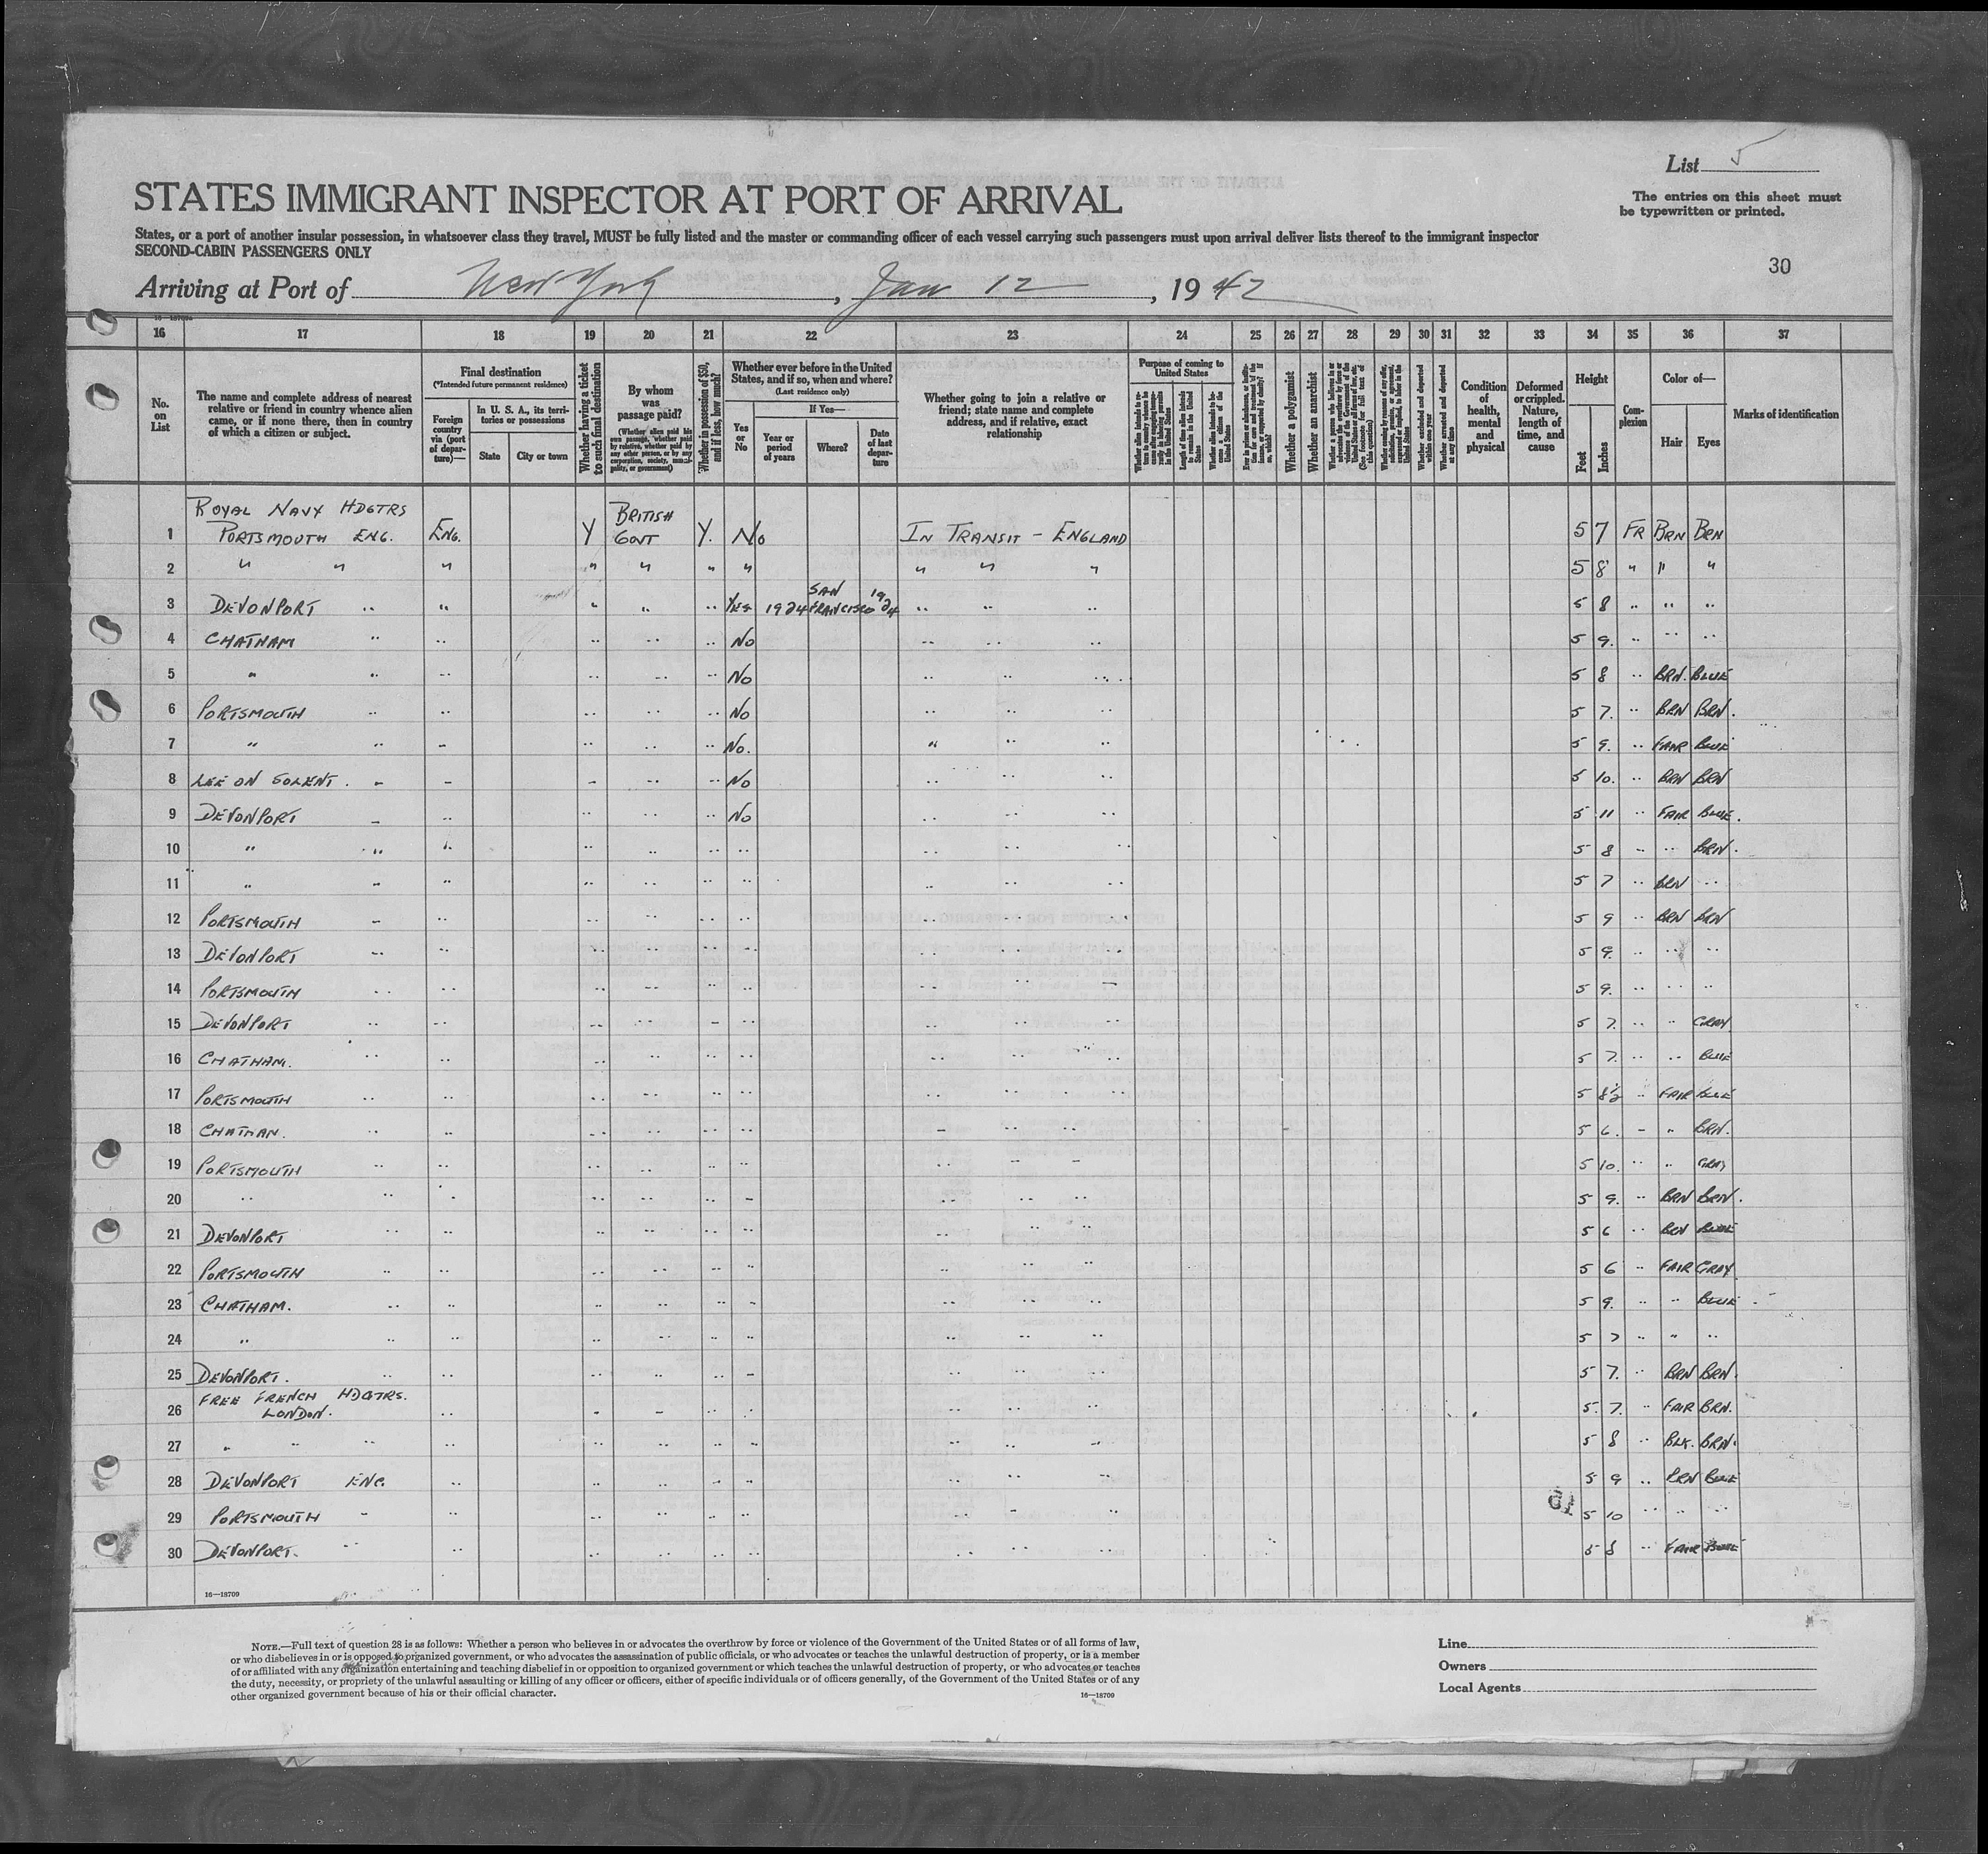 List 5
STATES IMMIGRANT INSPECTOR AT PORT OF ARRIVAL
The entries on this sheet must
be typewritten or printed.
States, or a port of another insular possession, in whatsoever class they travel, MUST be fully listed and the master or commanding officer of each vessel carrying such passengers must upon arrival deliver lists thereof to the immigrant inspector
SECOND-CABIN PASSENGERS ONLY
30
Arriving at Port of New York, Jan 12, 1942
16 17 18 19 20 21 22 23 24 25 26 27 28 29 30 31 32 33 34 35 36 37
No. on List
The name and complete address of nearest relative or friend in country whence alien came, or if none there, then in country of which a citizen or subject.
Final destination
(*Intended future permanent residence)
Foreign country via (port of departure)—
In U. S. A., its territories or possessions
State
City or town
Whether having a ticket to such final destination
By whom was passage paid?
(Whether alien paid his own passage, whether paid by relative, whether paid by any other person, or by any corporation, society, municipality, or government)
Whether in possession of $50, and if less, how much?
Whether ever before in the United States, and if so, when and where?
(Last residence only)
Yes or No
If Yes—
Year or period of years
Where?
Date of last departure
Whether going to join a relative or friend; state name and complete address, and if relative, exact relationship
Purpose of coming to United States
Whether a polygamist
Whether an anarchist
Whether excluded and deported within one year
Whether arrested and deported at any time
Condition of health, mental and physical
Deformed or crippled. Nature, length of time, and cause
Height
Feet
Inches
Complexion
Color of—
Hair
Eyes
Marks of identification
1 ROYAL NAVY HDGTRS PORTSMOUTH ENG. ENG. Y BRITISH GOVT Y. No IN TRANSIT - ENGLAND 5 7 FR BRN BRN
2 " " " " " " " " " " 5 8 " " "
3 DEVONPORT " " " " " YES 1924 SAN FRANCISCO 1924 " " " 5 8 " " "
4 CHATHAM " " " " " No " " " 5 9. " " "
5 " " " " " " No " " " 5 8 " BRN. BLUE
6 PORTSMOUTH " " " " " No " " " 5 7. " BRN BRN.
7 " " " " " " No. " " " 5 9. " FAIR BLUE
8 LEE ON SOLENT. " " " " " No " " " 5 10. " BRN BRN
9 DEVONPORT " " " " " No " " " 5 11 " FAIR BLUE.
10 " " " " " " " " " " 5 8 " " BRN.
11 " " " " " " " " " " 5 7 " BRN "
12 PORTSMOUTH " " " " " " " " " 5 9 " BRN BRN
13 DEVONPORT " " " " " " " " " 5 9. " " "
14 PORTSMOUTH " " " " " " " " " 5 9. " " "
15 DEVONPORT " " " " " " " " " 5 7. " " GRAY
16 CHATHAM. " " " " " " " " " 5 7. " " BLUE
17 PORTSMOUTH " " " " " " " " " 5 8½ " FAIR BLUE
18 CHATHAN. " " " " " " " " " 5 6. " " BRN.
19 PORTSMOUTH " " " " " " " " " 5 10. " " GRAY
20 " " " " " " " " " " 5 9. " BRN BRN.
21 DEVONPORT " " " " " " " " " 5 6 " BRN BLUE
22 PORTSMOUTH " " " " " " " " " 5 6 " FAIR GRAY
23 CHATHAM. " " " " " " " " " 5 9. " " BLUE
24 " " " " " " " " " " 5 7 " " "
25 DEVONPORT. " " " " " " " " " 5 7. " BRN BRN.
26 FREE FRENCH HDGTRS. LONDON. " " " " " " " " 5. 7. " FAIR BRN.
27 " " " " " " " " " " " 5 8 " BLK. BRN.
28 DEVONPORT ENG. " " " " " " " " 5 9 " BRN BLUE
29 PORTSMOUTH " " " " " " " " " 5 10 " " "
30 DEVONPORT. " " " " " " " " " 5 8 " FAIR BLUE
16—18709
NOTE.—Full text of question 28 is as follows: Whether a person who believes in or advocates the overthrow by force or violence of the Government of the United States or of all forms of law,
or who disbelieves in or is opposed to organized government, or who advocates the assassination of public officials, or who advocates or teaches the unlawful destruction of property, or is a member
of or affiliated with any organization entertaining and teaching disbelief in or opposition to organized government or which teaches the unlawful destruction of property, or who advocates or teaches
the duty, necessity, or propriety of the unlawful assaulting or killing of any officer or officers, either of specific individuals or of officers generally, of the Government of the United States or of any
other organized government because of his or their official character.
16—18709
Line
Owners
Local Agents